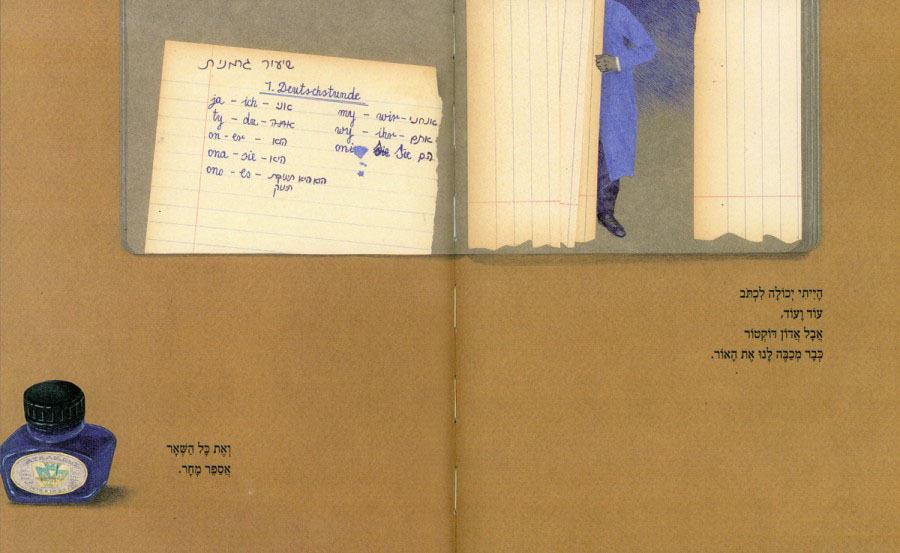 הָיִיתִי יְכוֹלָה לִכְתֹּב
עוֹד וָעוֹד,
אֲבָל אֲדוֹן דּוֹקְטוֹר
כְּבָר מְכַבֶּה לָנוּ אֶת הָאוֹר.
שיעור גרמנית
1. Deutschstunde
ja - ich - אני
ty - du - אתה
on - er - הוא
ona - sie - היא
ono - es - הוא היא תינוקת
תינוק
my - wir - אנחנו
wy - ihr - אתם
oni - Sie הם
וְאֶת כָּל הַשְּׁאָר
אֲסַפֵּר מָחָר.